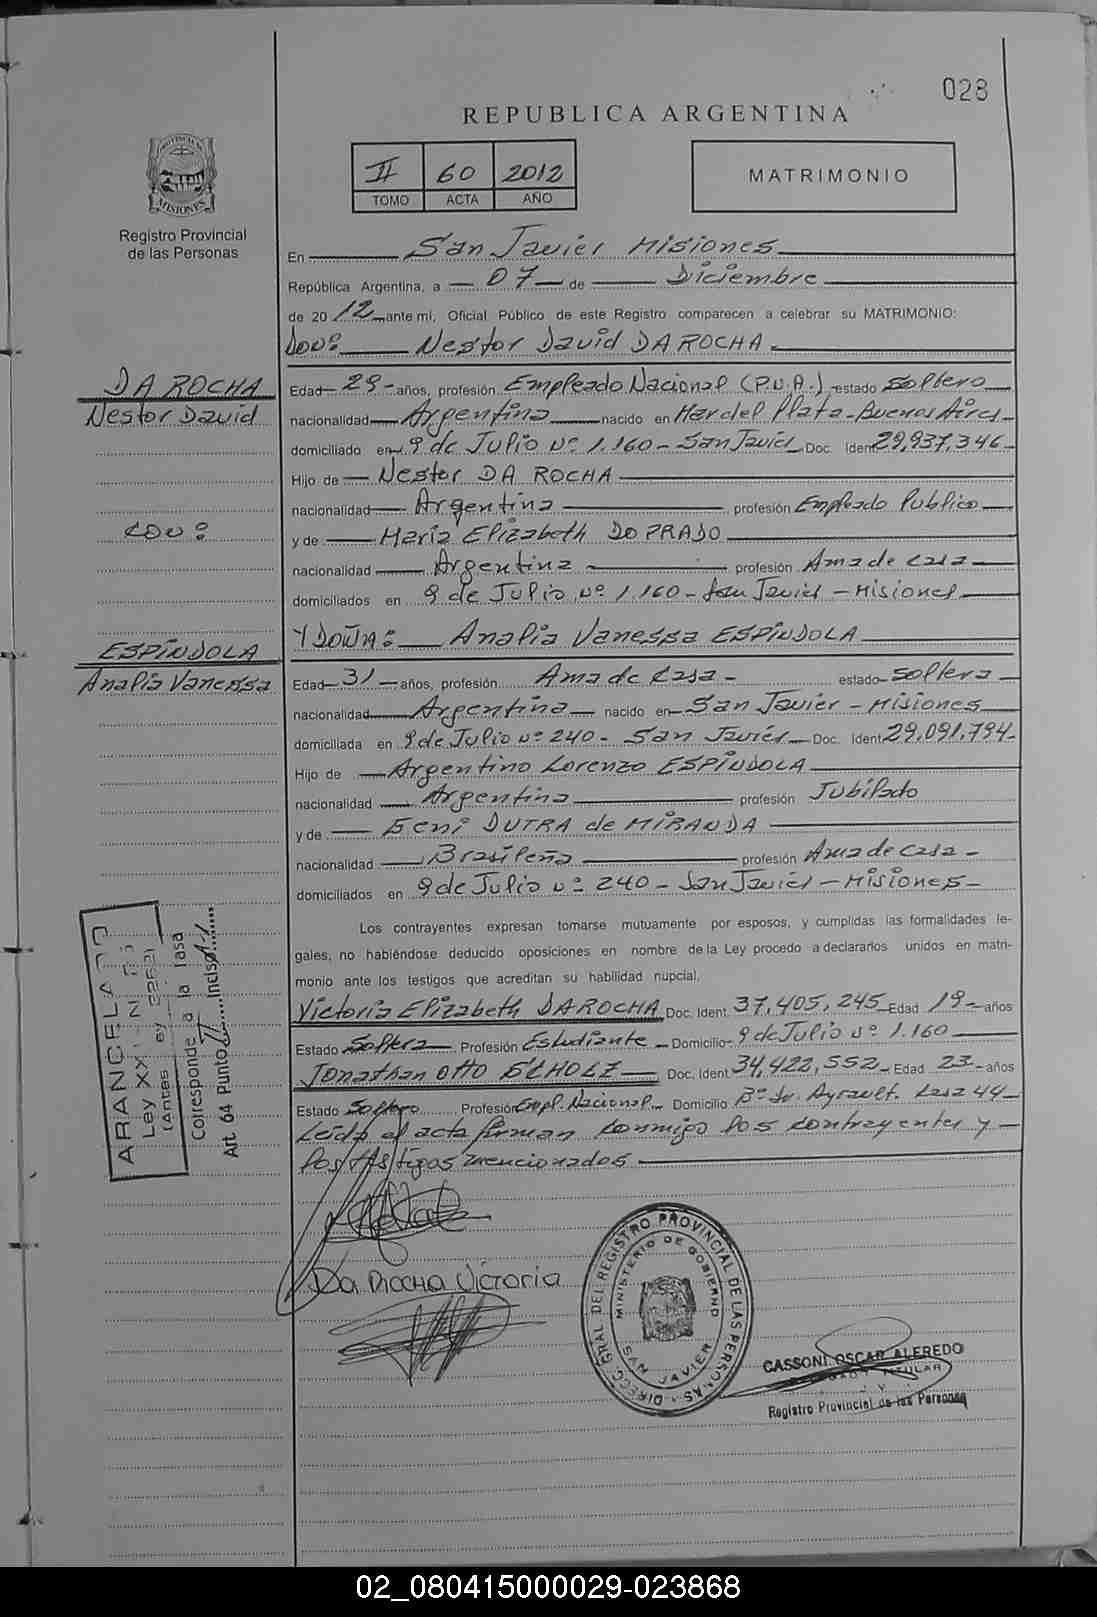 028
REPUBLICA ARGENTINA
PROVINCIA DE MISIONES
Registro Provincial
de las Personas
II 60 2012
TOMO ACTA AÑO
MATRIMONIO
En San Javier Misiones
República Argentina, a 07 de Diciembre
de 2012 ante mi, Oficial Público de este Registro comparecen a celebrar su MATRIMONIO:
Don: Nestor David DA ROCHA
DA ROCHA
Nestor David
con:
ESPÍNDOLA
Analia Vanessa
Edad 29 años, profesión Empleado Nacional (P.N.A.) estado Soltero
nacionalidad Argentina nacido en Mar del Plata - Buenos Aires
domiciliado en 9 de Julio Nº 1.160 - San Javier Doc. Ident. 29,937,346
Hijo de Nestor DA ROCHA
nacionalidad Argentina profesión Empleado Publico
y de Maria Elizabeth DO PRADO
nacionalidad Argentina profesión Ama de casa
domiciliados en 9 de Julio Nº 1.160 - San Javier - Misiones
Y DOÑA: Analia Vanessa ESPÍNDOLA
Edad 31 años, profesión Ama de casa - estado Soltera
nacionalidad Argentina nacido en San Javier - Misiones
domiciliada en 9 de Julio Nº 240 - San Javier Doc. Ident. 29,091,794
Hijo de Argentino Lorenzo ESPÍNDOLA
nacionalidad Argentina profesión Jubilado
y de Eeni DUTRA de MIRANDA
nacionalidad Brasileña profesión Ama de casa -
domiciliados en 9 de Julio Nº 240 - San Javier - Misiones -
Los contrayentes expresan tomarse mutuamente por esposos, y cumplidas las formalidades le-
gales, no habiéndose deducido oposiciones en nombre de la Ley procedo a declararlos unidos en matri-
monio ante los testigos que acreditan su habilidad nupcial.
Victoria Elizabeth DA ROCHA Doc. Ident. 37,405,245 Edad 19 años
Estado Soltera Profesión Estudiante Domicilio 9 de Julio Nº 1.160
Jonathan Otto Doc. Ident. 34,422,552 Edad 23 años
Estado Soltero Profesión Empl. Nacional Domicilio Bº Dr. Ayrault. Casa 44
Leida el acta firman conmigo los contrayentes y
los testigos mencionados
ARANCELADO
Ley XX
Corresponde a la Tasa
Art. 64 Punto II Inciso
Da Rocha Victoria
DIRECC. GRAL DEL REGISTRO PROVINCIAL DE LAS PERSONAS
MINISTERIO DE GOBIERNO
SAN JAVIER
CASSONI OSCAR ALFREDO
TITULAR
Registro Provincial de las Personas
02_080415000029-023868